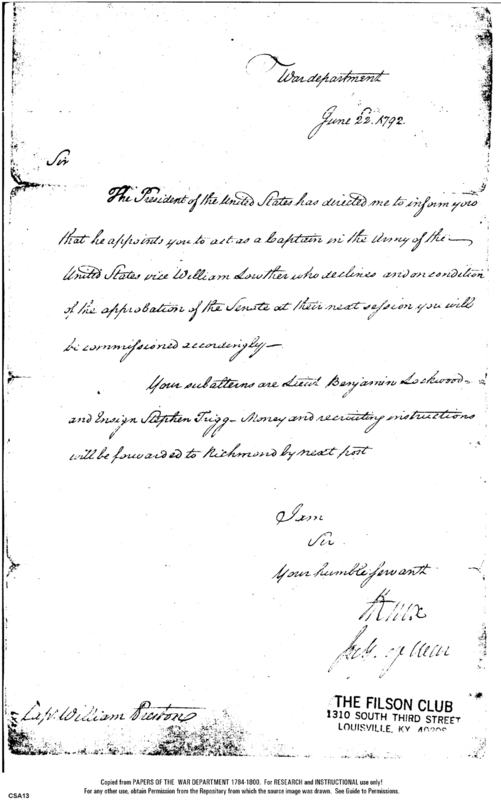 War department
June 22. 1792.
Sir
The President of the United States has directed me to inform you
that he appoints you to act as a Captain in the Army of the—
United States vice William Lowther who declines and on condition
of the approbation of the Senate at their next session you will
be commissioned accordingly—
Your subalterns are Lieut Benjamin Lockwood
and Ensign Stephen Trigg— Money and recruiting instructions
will be forwarded to Richmond by next post
I am
Sir
Your humble Servant
H Knox
Secy. of War
Capt. William Preston
THE FILSON CLUB
1310 SOUTH THIRD STREET
LOUISVILLE, KY 
Copied from PAPERS OF THE WAR DEPARTMENT 1784-1800. For RESEARCH and INSTRUCTIONAL use only!
For any other use, obtain Permission from the Repository from which the source image was drawn. See Guide to Permissions.
CSA13